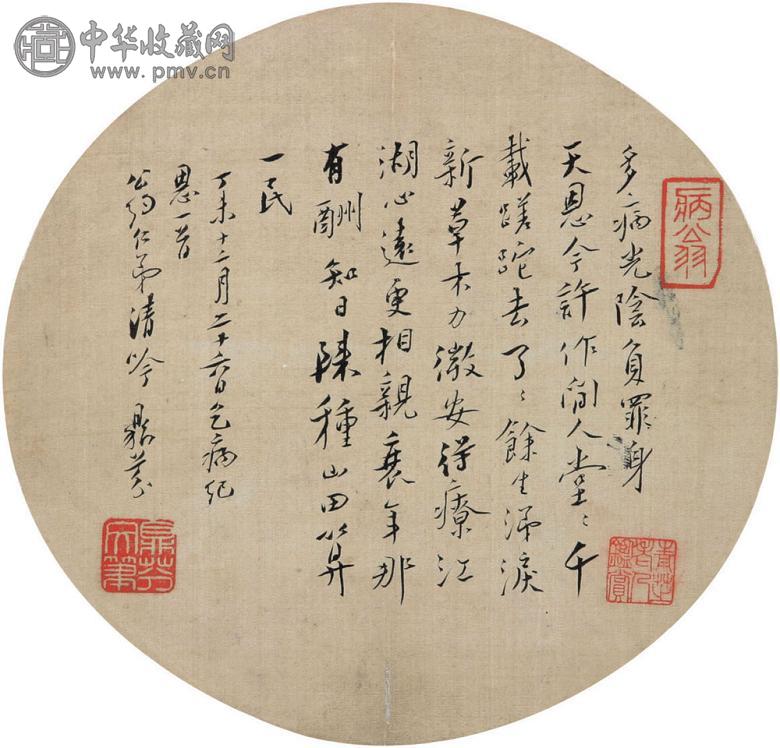 中华收藏网
www.pmv.cn
病翁
多病光陰負罪身
天恩今許作閒人堂〻千
載蹉跎去了〻餘生涕淚
新草木力微安得療江
湖心遠更相親衰年那
有酬知日陳種山田算
一民
丁未十二月二十六日乞病紀
恩一首
仁弟清吟 鼎芬